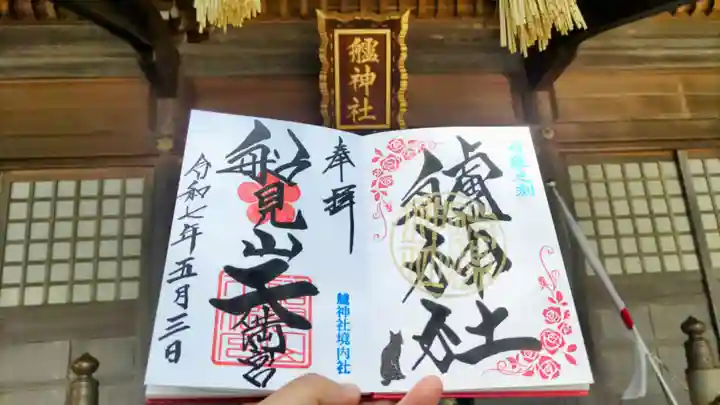 艫神社
艫神社
奉拝
船見山天満宮
艫神社境内社
令和七年五月三日